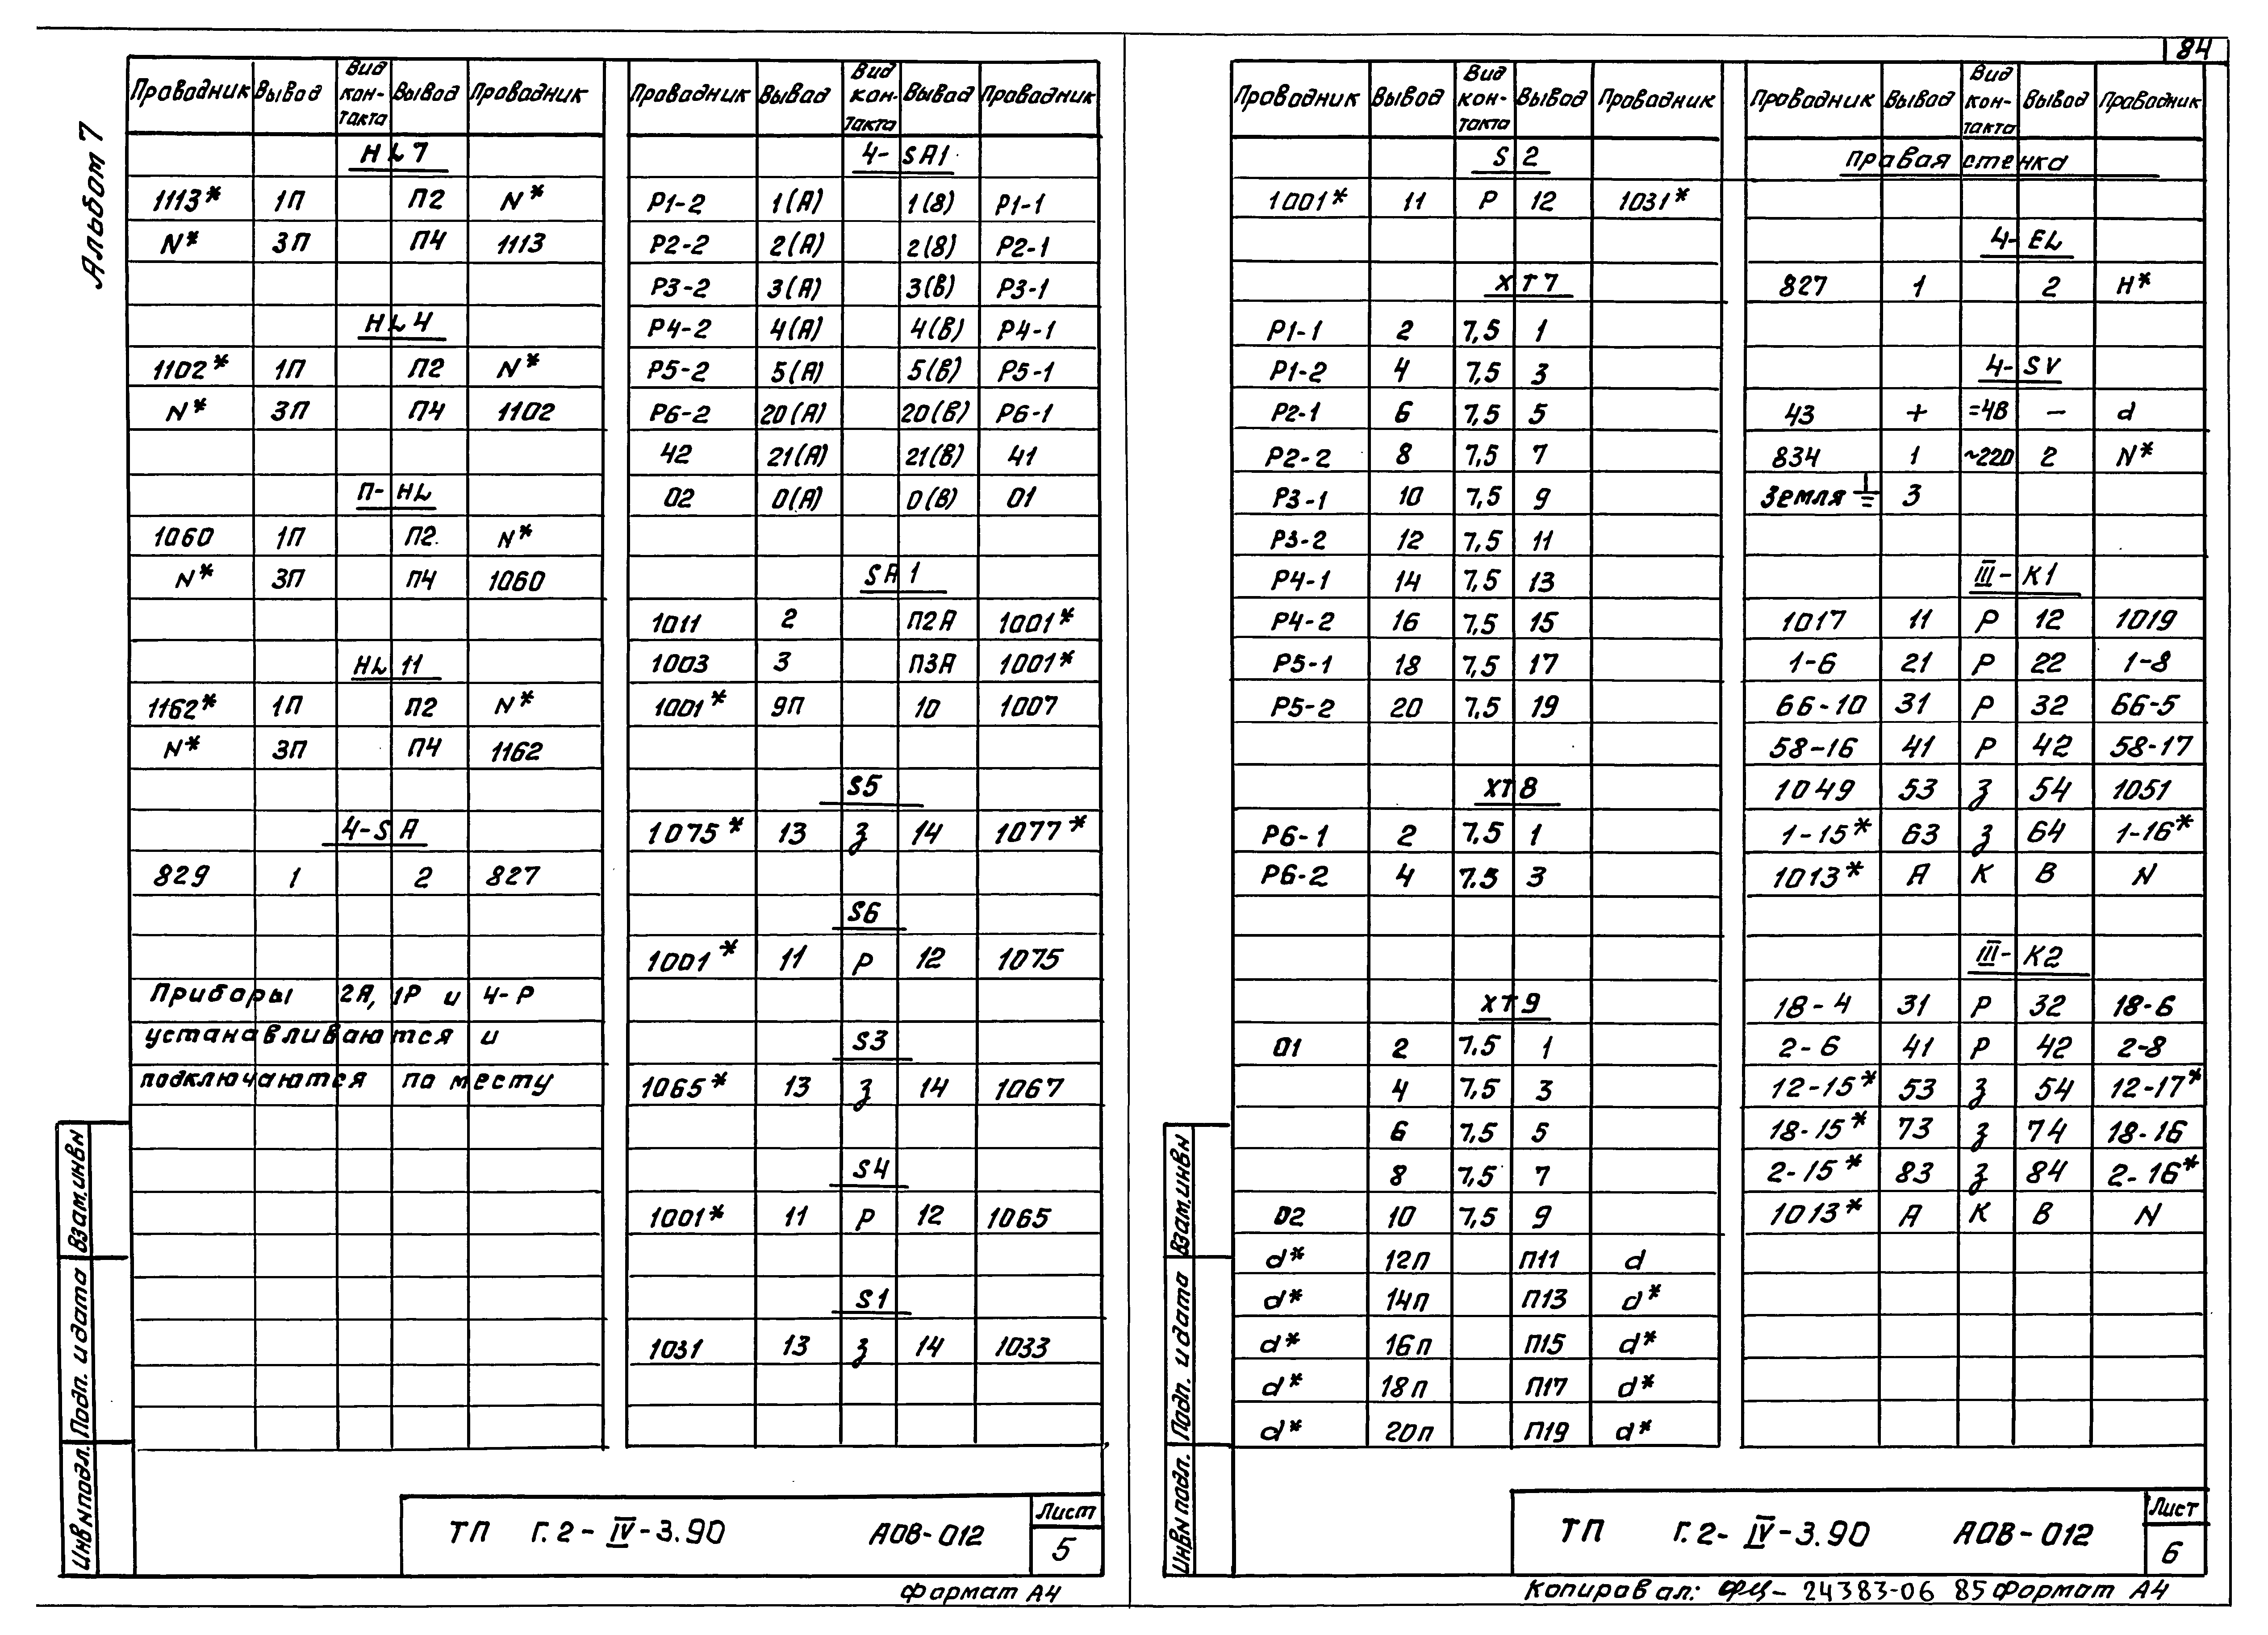 84
Альбом 7
Проводник Вывод Вид кон- такта Вывод Проводник
HL7
1113* 1П П2 N*
N* 3П П4 1113
HL4
1102* 1П П2 N*
N* 3П П4 1102
П-HL
1060 1П П2 N*
N* 3П П4 1060
HL11
1162* 1П П2 N*
N* 3П П4 1162
4-SA
829 1 2 827
Приборы 2Я, 1Р и 4-Р
устанавливаются и
подключаются по месту
Проводник Вывод Вид кон- такта Вывод Проводник
4-SA1
P1-2 1(A) 1(В) P1-1
P2-2 2(A) 2(В) P2-1
P3-2 3(A) 3(В) P3-1
P4-2 4(A) 4(В) P4-1
P5-2 5(A) 5(В) P5-1
P6-2 20(A) 20(В) P6-1
42 21(A) 21(В) 41
02 0(A) 0(В) 01
SA1
1011 2 П2Я 1001*
1003 3 П3Я 1001*
1001* 9П 10 1007
S5
1075* 13 З 14 1077*
S6
1001* 11 Р 12 1075
S3
1065* 13 З 14 1067
S4
1001* 11 Р 12 1065
S1
1031 13 З 14 1033
Взам.инвN
Подп. и дата
ИнвNподл.
ТП Г.2-IV-3.90 АОВ-012
Лист
5
Формат А4
Проводник Вывод Вид кон- такта Вывод Проводник
S2
1001* 11 Р 12 1031*
XT7
P1-1 2 7,5 1
P1-2 4 7,5 3
P2-1 6 7,5 5
P2-2 8 7,5 7
P3-1 10 7,5 9
P3-2 12 7,5 11
P4-1 14 7,5 13
P4-2 16 7,5 15
P5-1 18 7,5 17
P5-2 20 7,5 19
XT8
P6-1 2 7.5 1
P6-2 4 7.5 3
XT9
01 2 7.5 1
4 7,5 3
6 7,5 5
8 7,5 7
02 10 7,5 9
d* 12п П11 d
d* 14п П13 d*
d* 16п П15 d*
d* 18п П17 d*
d* 20п П19 d*
Проводник Вывод Вид кон- такта Вывод Проводник
Правая стенка
4-EL
827 1 2 Н*
4-SV
43 + =4В — d
834 1 ~220 2 N*
Земля ⏚ 3
III-K1
1017 11 Р 12 1019
1-6 21 Р 22 1-8
66-10 31 Р 32 66-5
58-16 41 Р 42 58-17
1049 53 З 54 1051
1-15* 63 З 64 1-16*
1013* А К В N
III-K2
18-4 31 Р 32 18-6
2-6 41 Р 42 2-8
12-15* 53 З 54 12-17*
18-15* 73 З 74 18-16
2-15* 83 З 84 2-16*
1013* А К В N
Взам.инвN
Подп. и дата
ИнвN подл.
ТП Г.2-IV-3.90 АОВ-012
Лист
6
Копировал: 24383-06 85 Формат А4